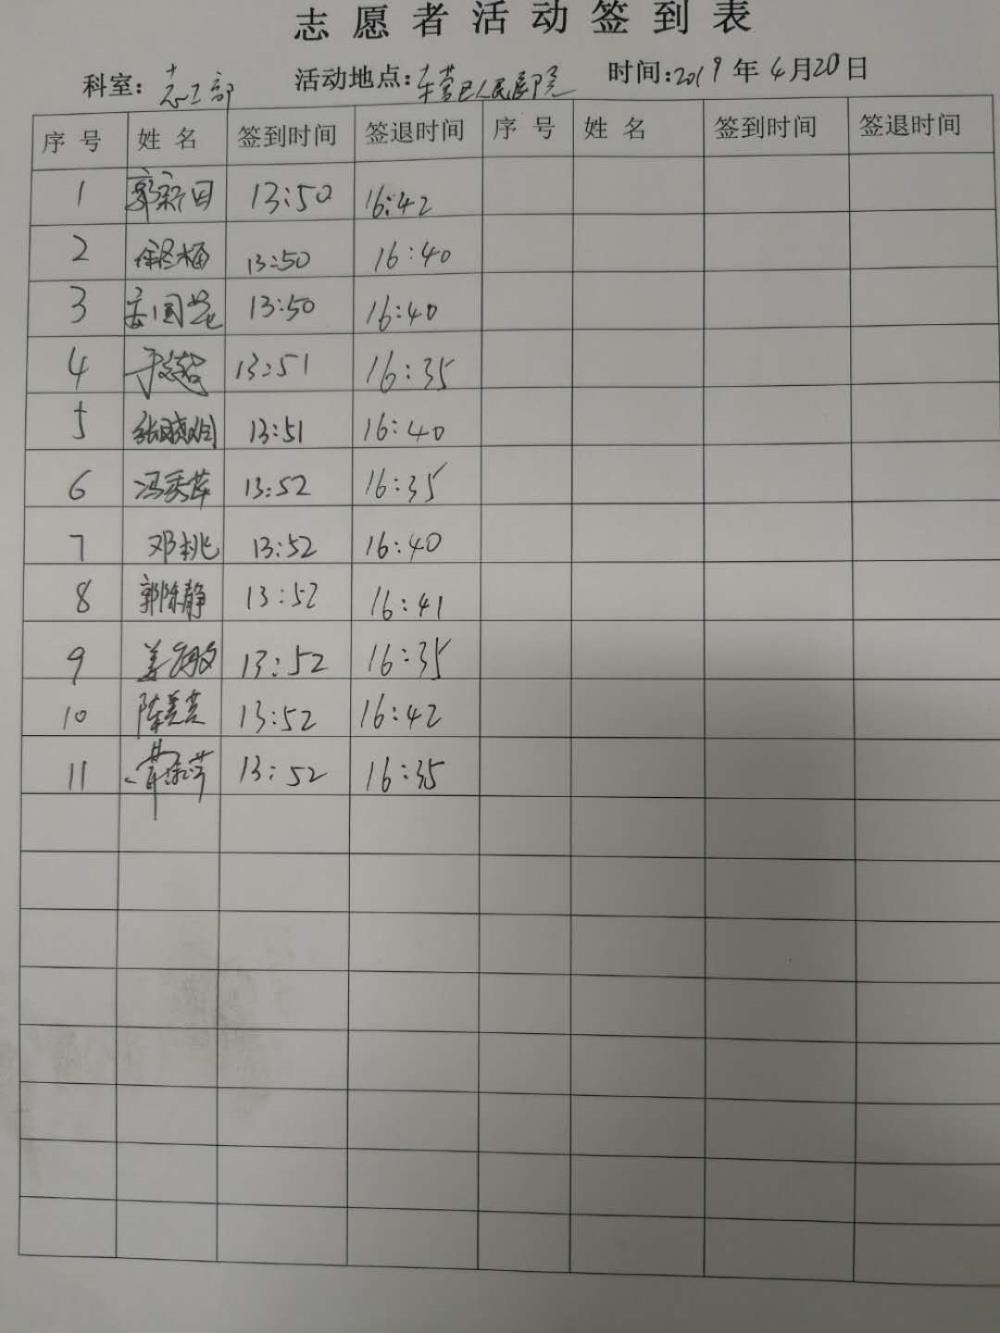 志愿者活动签到表
科室：志工部 活动地点：东营区人民医院 时间：2019年4月20日
序号 姓名 签到时间 签退时间 序号 姓名 签到时间 签退时间
1 郭新田 13:50 16:42
2 13:50 16:40
3 13:50 16:40
4 13:51 16:35
5 13:51 16:40
6 冯秀萍 13:52 16:35
7 邓桃 13:52 16:40
8 郭陈静 13:52 16:41
9 13:52 16:35
10 13:52 16:42
11 13:52 16:35